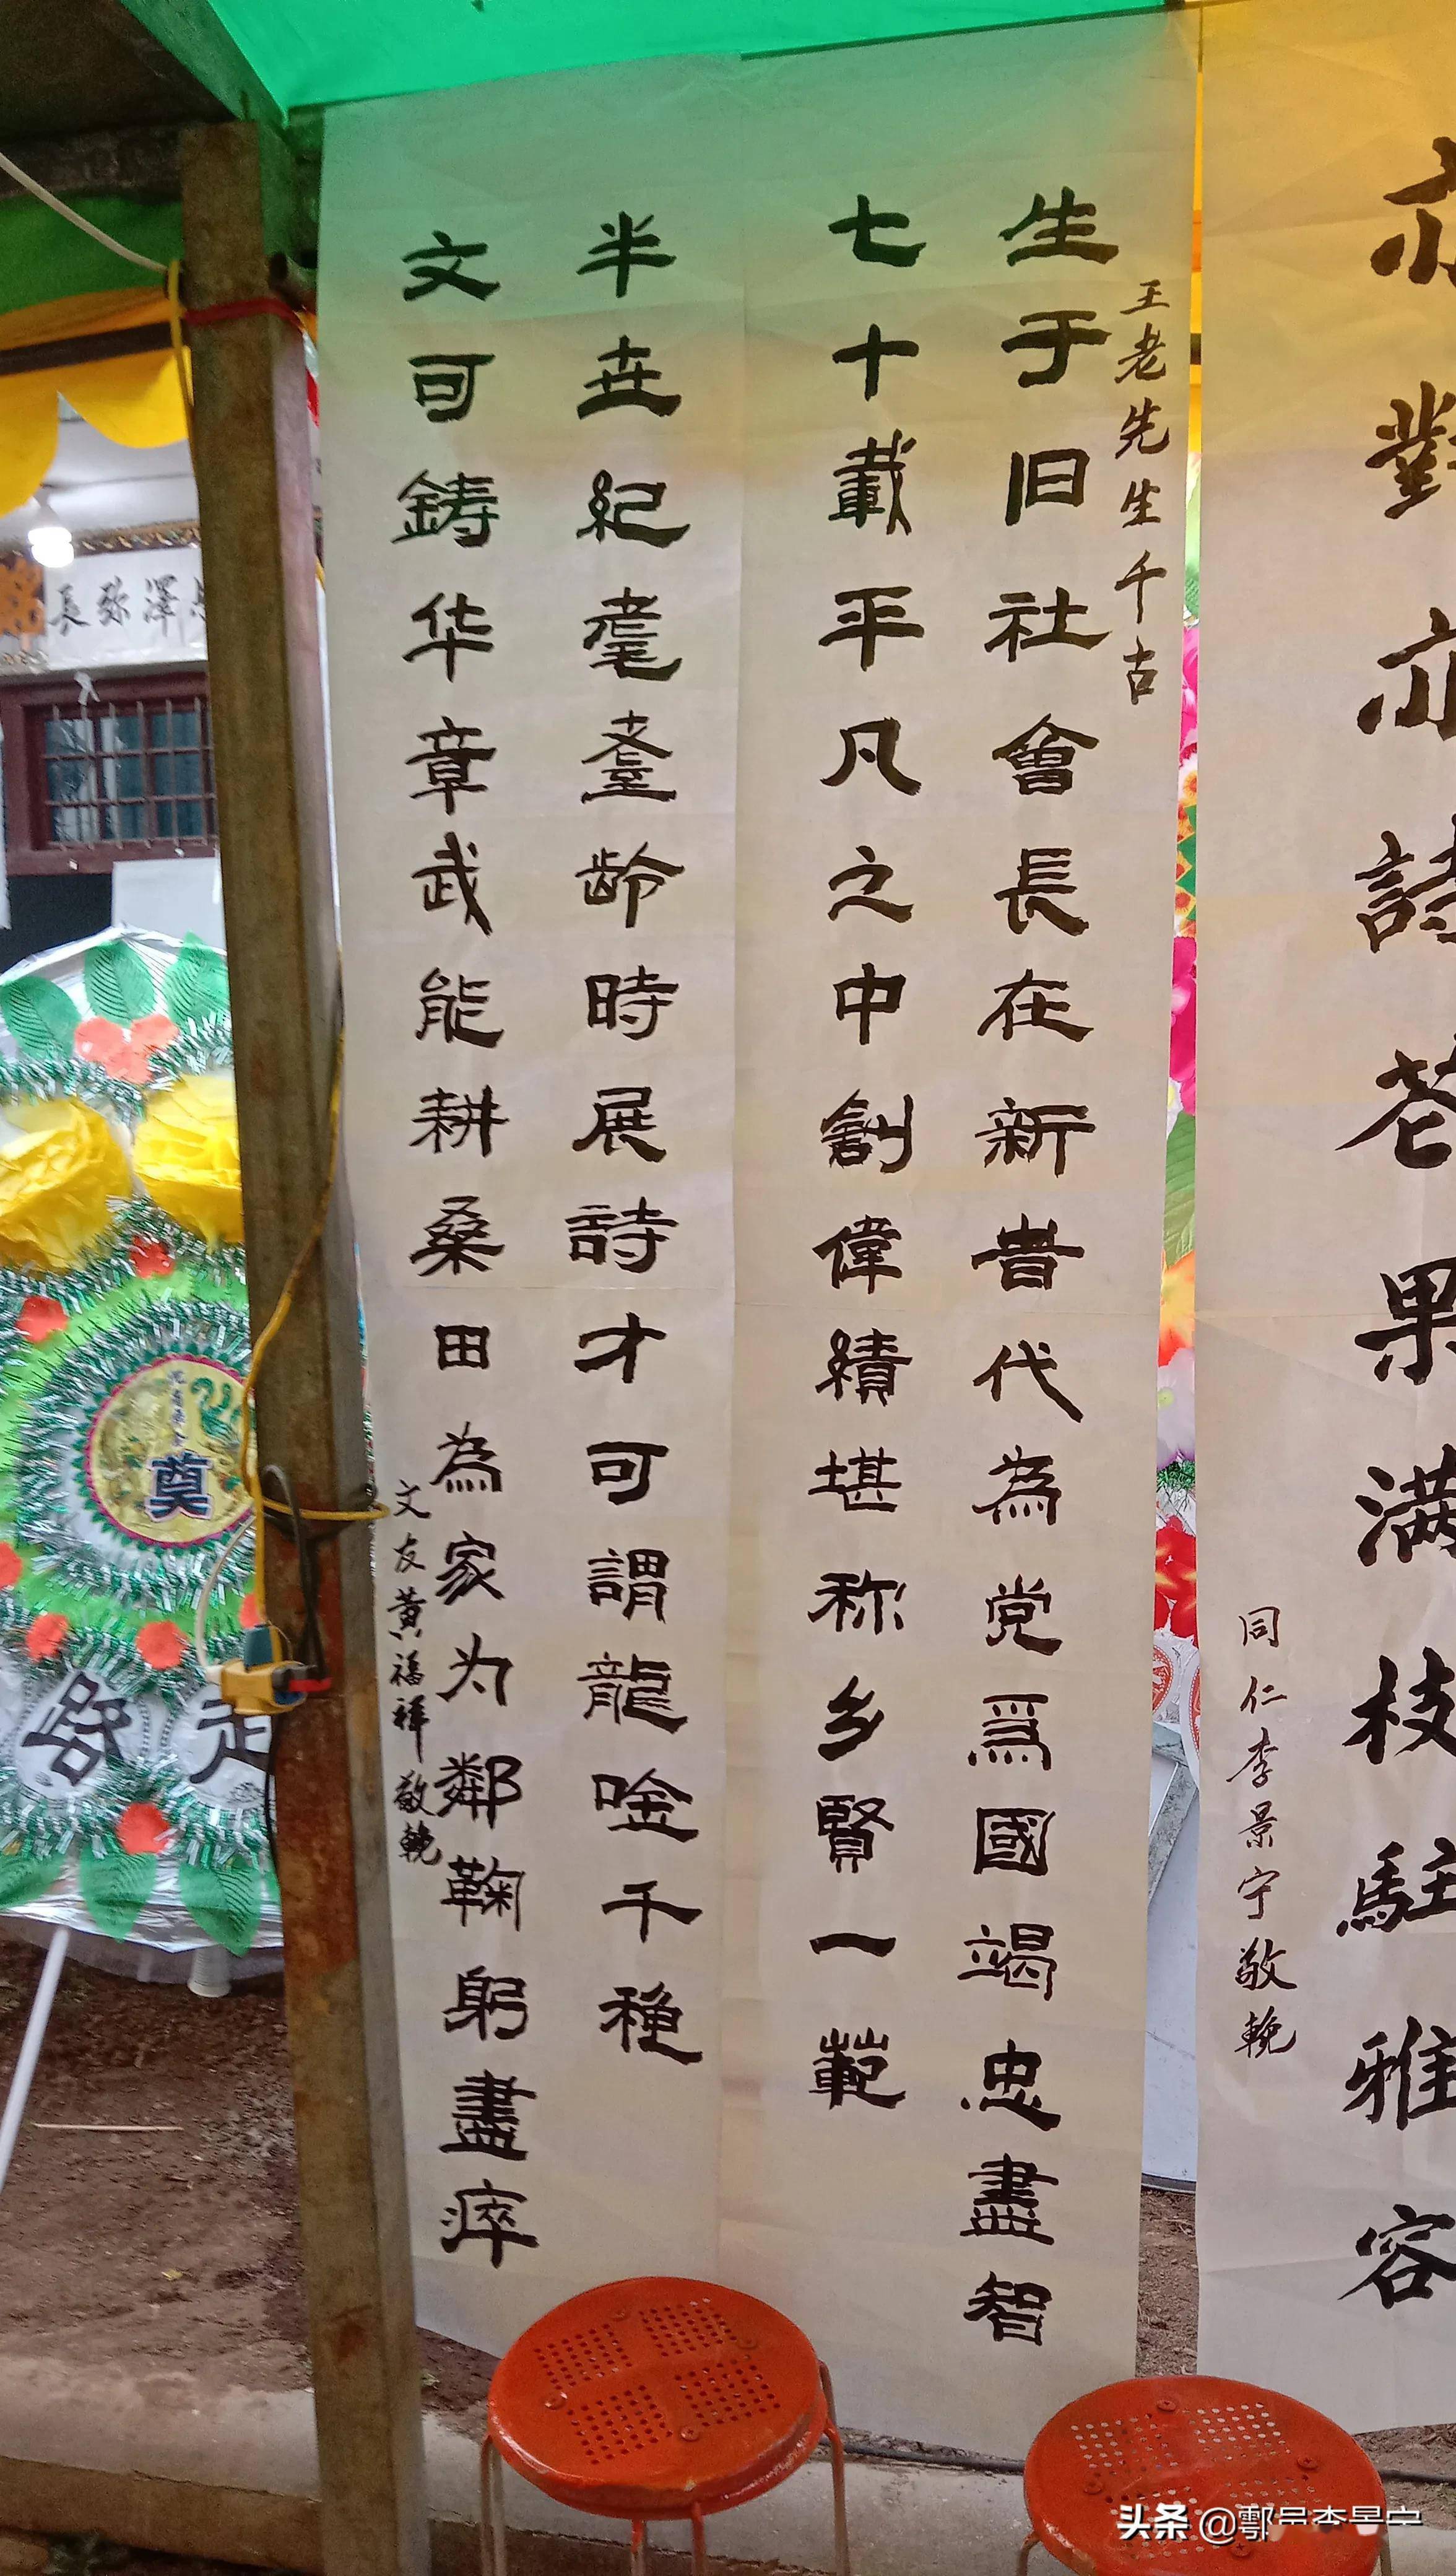 亦對亦詩花果满枝駐雅容
同仁李景宁敬輓
王老先生千古
生于旧社會長在新昔代為党爲國竭忠盡智
七十載平凡之中創偉績堪称乡賢一範
半世紀耄耋龄時展詩才可謂龍唫千
文可鋳华章武能耕桑田為家为鄰鞠躬盡瘁
文友黄福祥敬輓
澤弥長
奠
头条 @鄠邑李景宁